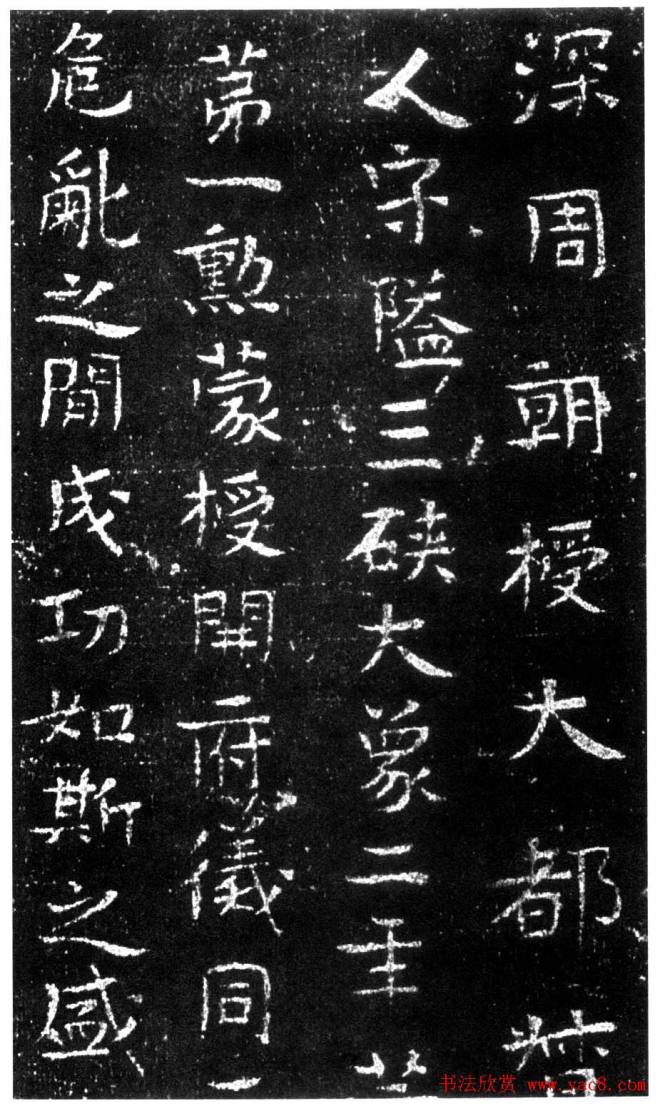 深周朝授大都
人守隘三硖大象二年
苐一勲蒙授開府儀同
危亂之間成功如斯之盛
书法欣赏 www.yac8.com